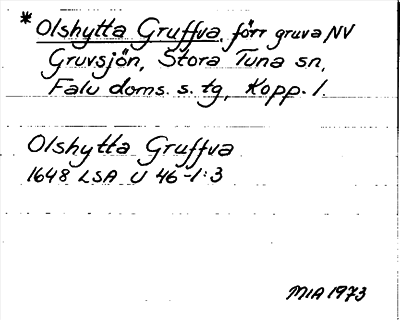 * Olshytta Gruffva, förr gruva NV
Gruvsjön, Stora Tuna sn,
Falu doms. s. tg, Kopp. l.
Olshytta Gruffva
1648 LSA U 46-1:3
MIA 1973